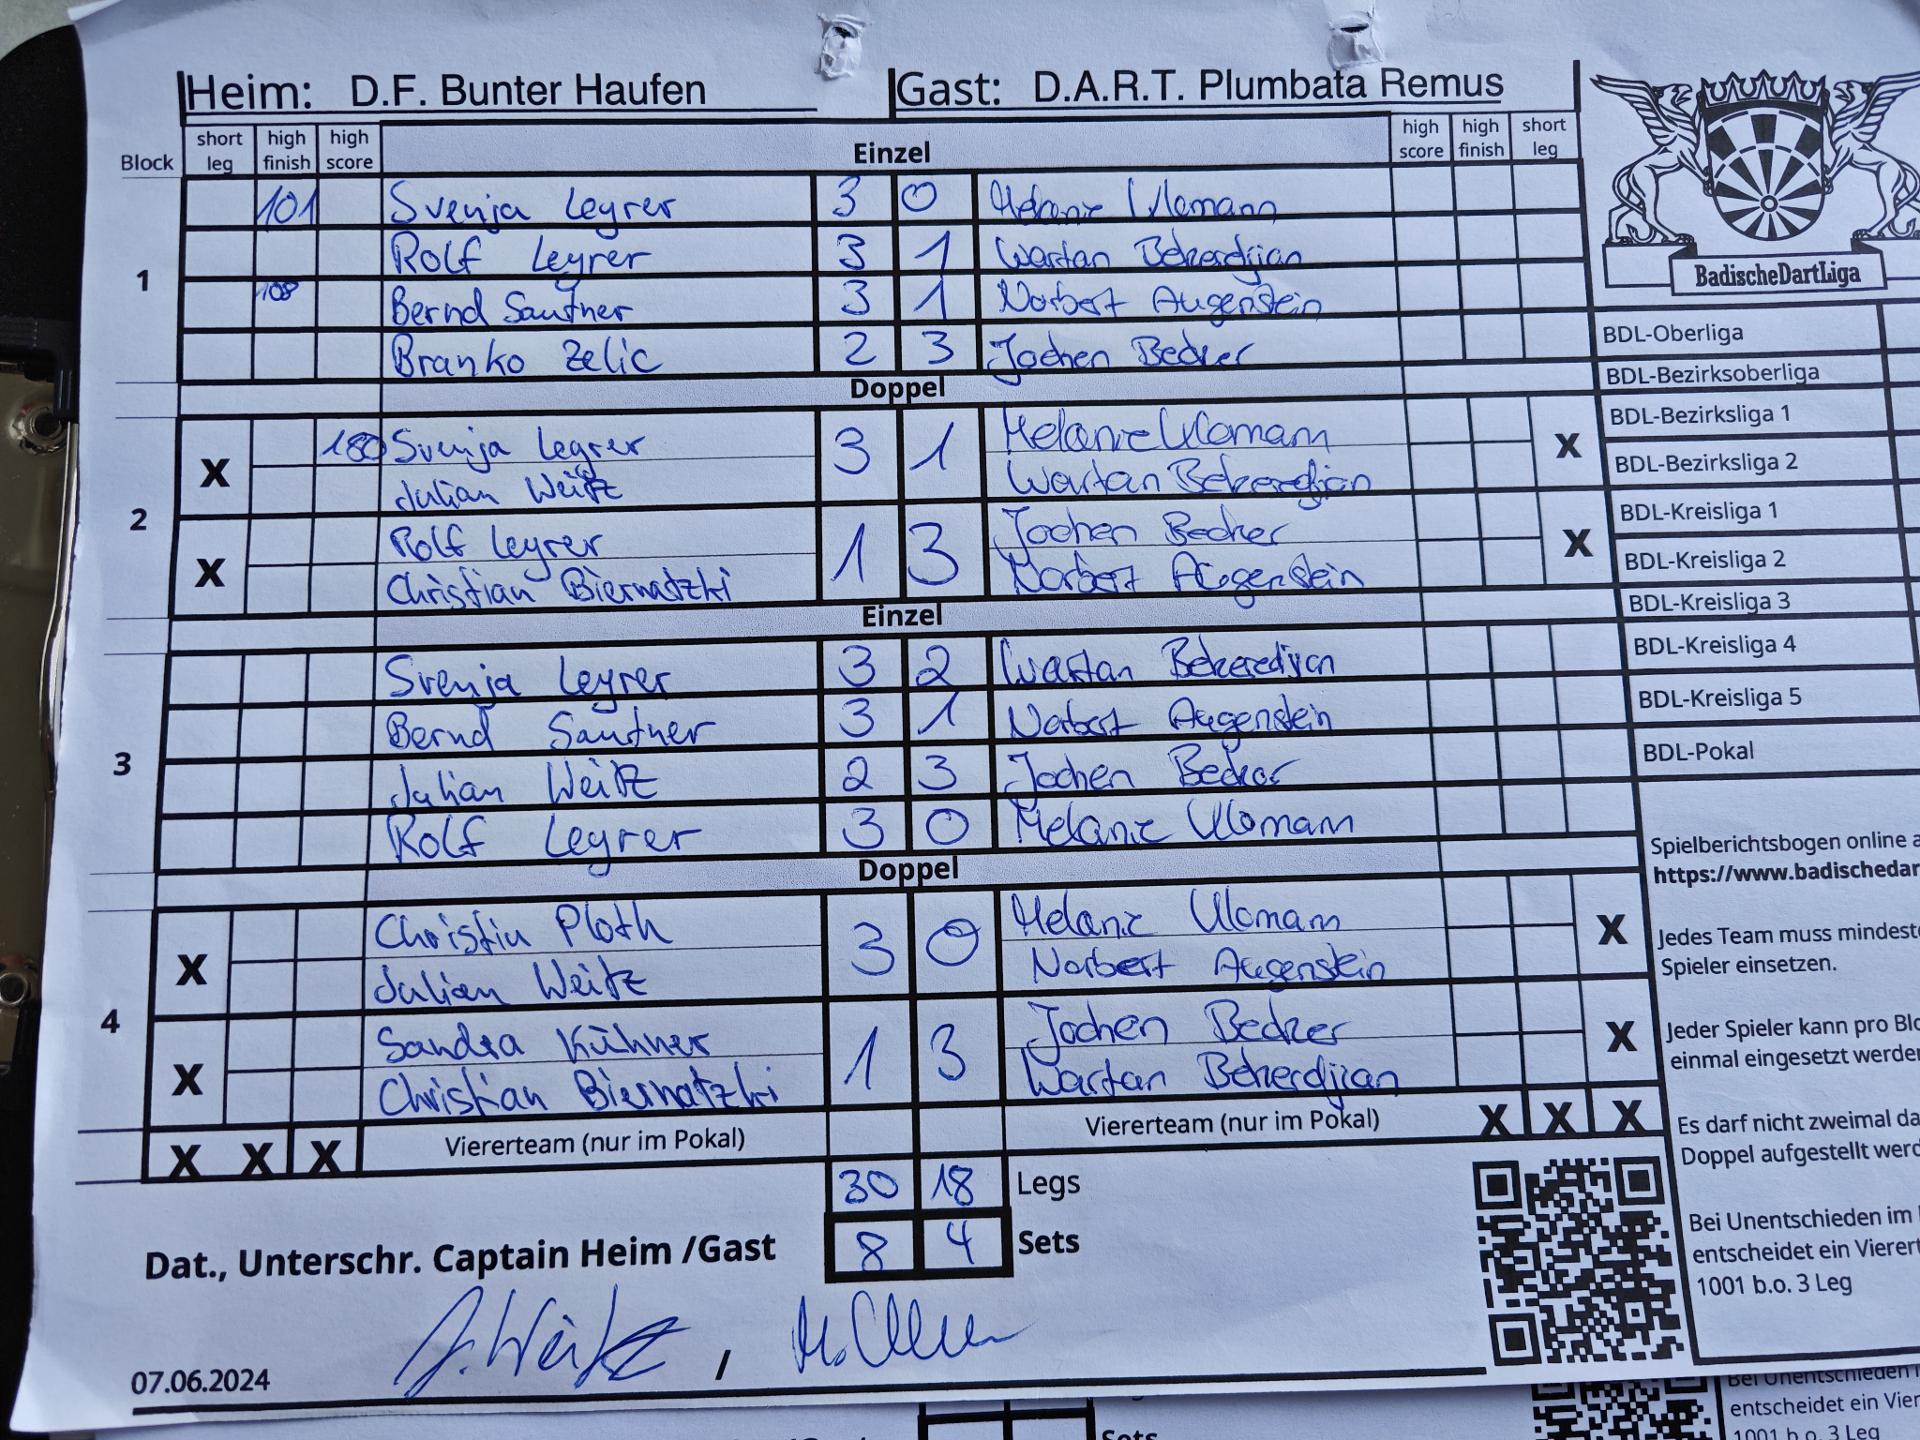 Heim: D.F. Bunter Haufen Gast: D.A.R.T. Plumbata Remus
Block short leg high finish high score Einzel high score high finish short leg
1
101 Svenja Leyrer 3 0 Melanie Ulomann
Rolf Leyrer 3 1 Wartan Bekerdijan
108 Bernd Sautner 3 1 Norbert Augenstein
Branko Zelic 2 3 Jochen Becker
Doppel
2
X 180 Svenja Leyrer 3 1 Melanie Ulomann X
Julian Weitz Wartan Bekerdijan
X Rolf Leyrer 1 3 Jochen Becker X
Christian Biernatzki Norbert Augenstein
Einzel
3
Svenja Leyrer 3 2 Wartan Bekeredijan
Bernd Sautner 3 1 Norbert Augenstein
Julian Weitz 2 3 Jochen Becker
Rolf Leyrer 3 0 Melanie Ulomann
Doppel
4
X Christin Ploth 3 0 Melanie Ulomann X
Julian Weitz Norbert Augenstein
X Sandra Kühner 1 3 Jochen Becker X
Christian Biernatzki Wartan Bekerdijan
X X X Viererteam (nur im Pokal) Viererteam (nur im Pokal) X X X
30 18 Legs
Dat., Unterschr. Captain Heim /Gast 8 4 Sets
J. Weitz /
07.06.2024
BadischeDartLiga
BDL-Oberliga
BDL-Bezirksoberliga
BDL-Bezirksliga 1
BDL-Bezirksliga 2
BDL-Kreisliga 1
BDL-Kreisliga 2
BDL-Kreisliga 3
BDL-Kreisliga 4
BDL-Kreisliga 5
BDL-Pokal
Spielberichtsbogen online a
https://www.badischedar
Jedes Team muss mindest
Spieler einsetzen.
Jeder Spieler kann pro Blo
einmal eingesetzt werde
Es darf nicht zweimal da
Doppel aufgestellt werd
Bei Unentschieden im
entscheidet ein Vierert
1001 b.o. 3 Leg
Bei Unentschieden
entscheidet ein Vier
1001 b.o. 3 Leg
Sets